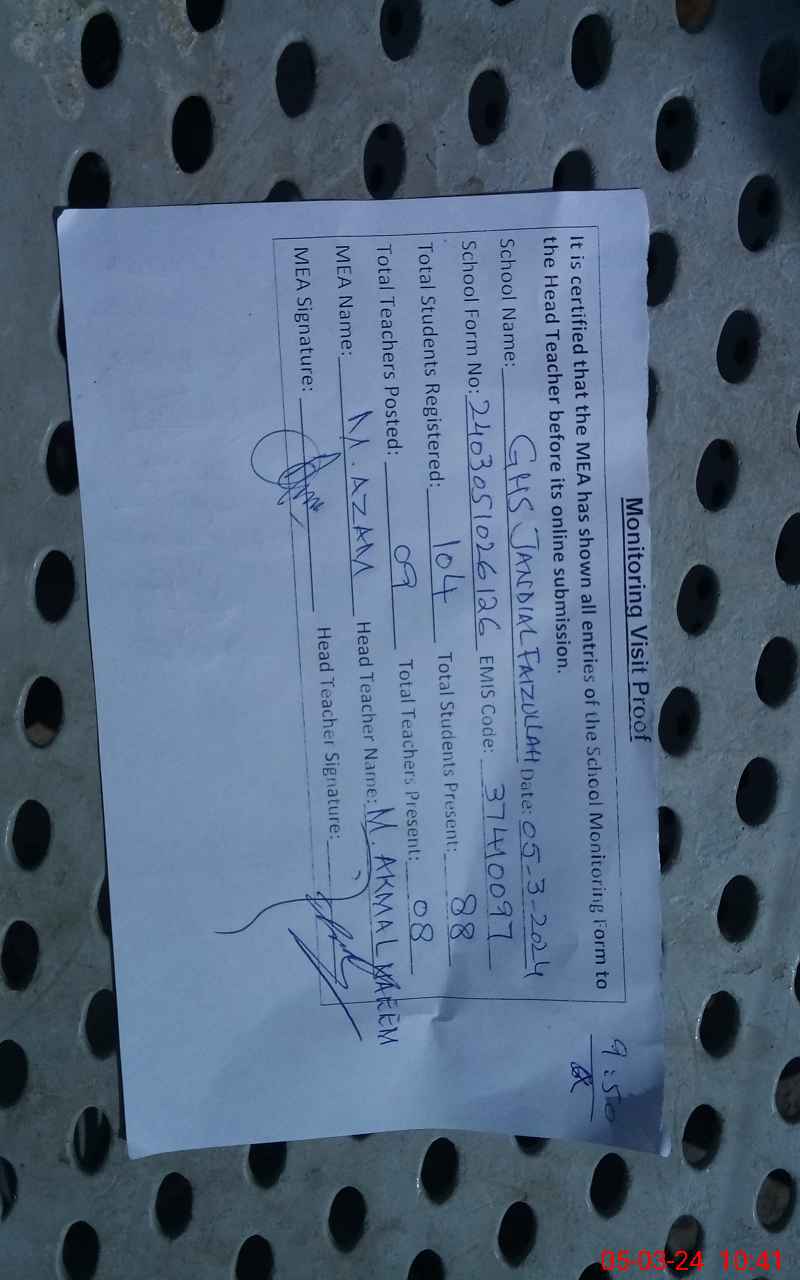 Monitoring Visit Proof
9:50
It is certified that the MEA has shown all entries of the School Monitoring Form to
the Head Teacher before its online submission.
School Name: GHS JANDIAL FAIZULLAH Date: 05-3-2024
School Form No: 2403051026126 EMIS Code: 37410097
Total Students Registered: 104 Total Students Present: 88
Total Teachers Posted: 09 Total Teachers Present: 08
MEA Name: M. AZAM Head Teacher Name: M. AKMAL
MEA Signature: Head Teacher Signature:
05-03-24 10:41